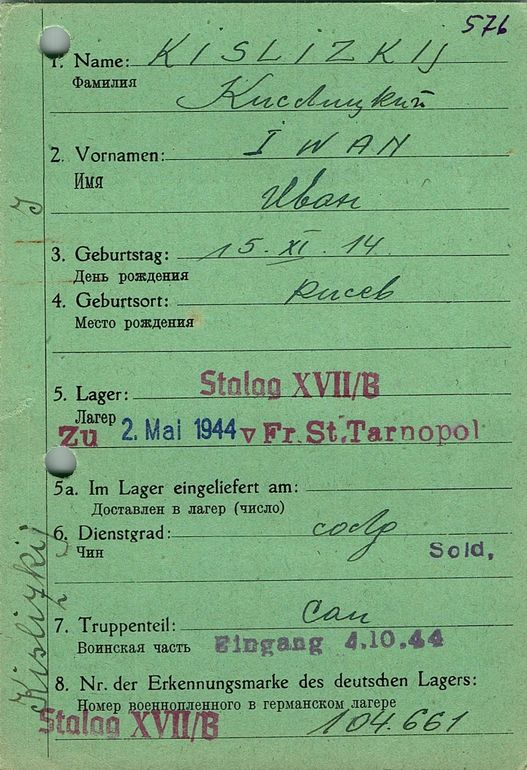 576
1. Name: KISLIZKIJ
Фамилия
Кислицкий
2. Vornamen: IWAN
Имя
Иван
J
3. Geburtstag: 15. XI. 14
День рождения
4. Geburtsort: Киев
Место рождения
5. Lager: Stalag XVII/B
Лагер
Zu 2. Mai 1944 v Fr. St. Tarnopol
5a. Im Lager eingeliefert am:
Доставлен в лагер (число)
6. Dienstgrad: солд
Чин
Sold.
7. Truppenteil: сап
Воинская часть Eingang 4.10.44
8. Nr. der Erkennungsmarke des deutschen Lagers:
Номер военнопленного в германском лагере
Stalag XVII/B 104.661
Kislizkij